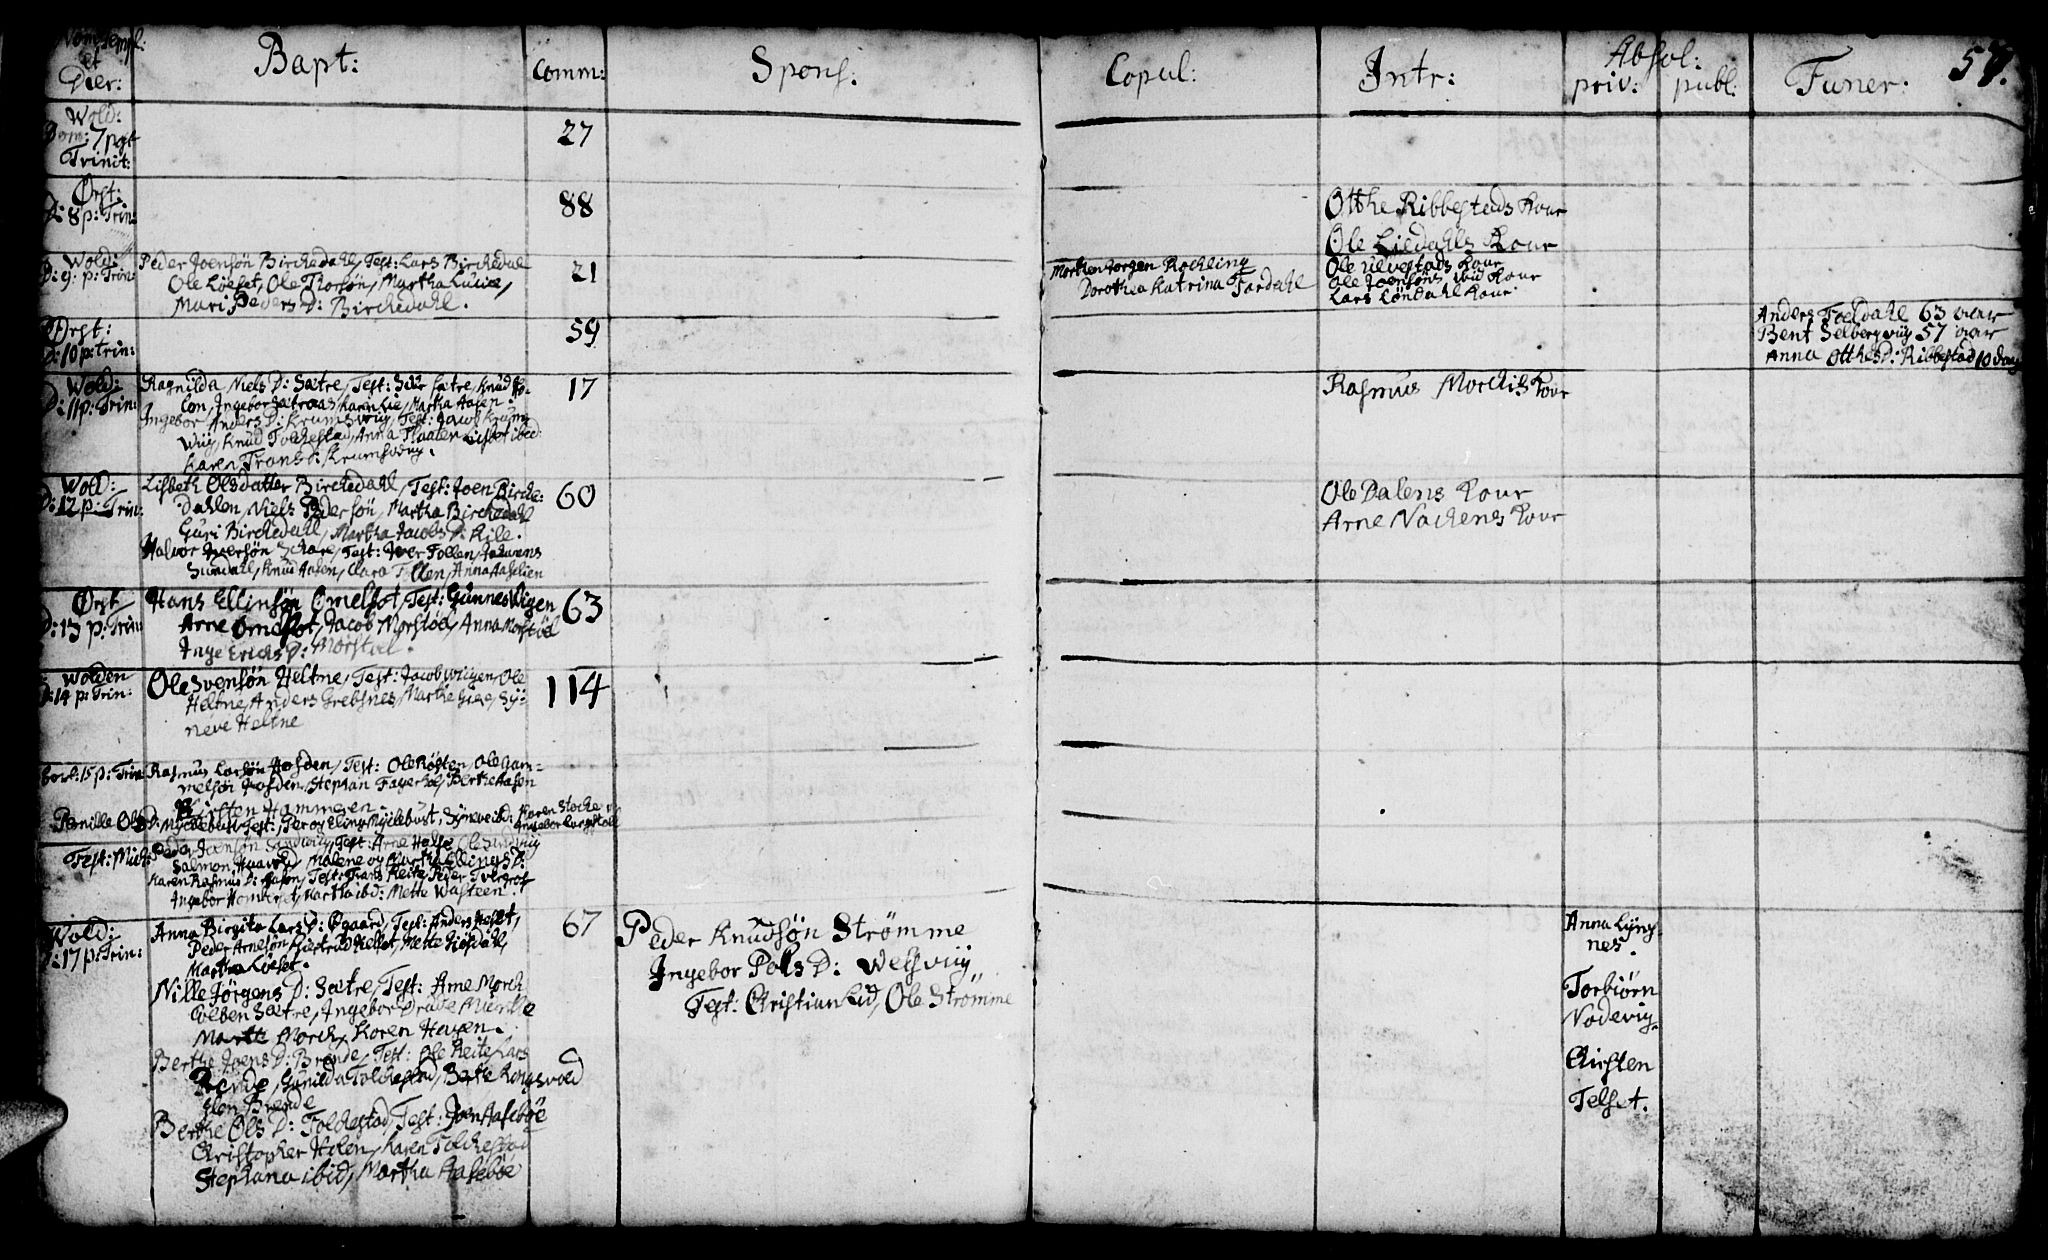 Nom: Templ:
et
Dier:
Bapt:
Comm:
Spons:
Copul:
Intr:
Absol:
priv: publ:
Funer:
Wold:
Dom: 7 pst
Trinit:
27
Ørst:
D: 8 p: Trin:
88
Otthe Ribbestads Kone
Ole Liedahls Kone
Wold:
D: 9. p: Trin:
Peder Joensøn Birchedahl, Test: Lars Birchedal
Ole Løeset, Ole Thorsøn, Martha Lucie,
Mari Peders D: Birchedahl.
21
Morthen Jorgen Rochling
Dorothea Katrina Fordahl
Ole Ulvestads Kone
Ole Joensøns ibid Kone
Lars Løndahl Kone
Ørst:
D: 10 p: Trin:
59
Anders Foeldahl 63 aar
Bent Selbergvüg 57 aar
Anna Otthes D: Ribbestad 10 dag
Wold:
D: 11 p: Trin:
Ragnilda Niels D: Sætre, Test: Siur Sætre, Knud
Ingebor Sætraas, Karen Lie, Martha Aasen.
Ingebor Anders D: Krumsvüg, Test: Jacob Krums
Wüg, Knud Folchestad, Anna Flaaten Lisbet ibid:
Karen Frans D: Krumsvüg.
17
Rasmus Morchis Kone
Wold:
D: 12 p: Trin:
Lisbeth Olsdatter Birchedahl, Test: Joen Birche:
Dahlen, Niels Pedersøn, Martha Birchedahl
Guri Birchedahl, Martha Jacobs D: Kile.
Halvor Iversøn Schare, Test: Iver Follen, Johanens
Sundahl, Knud Aasen, Clara Follen, Anna Aaselien
60
Ole Dalens Kone
Arne Nachens Kone
Ørst
D: 13 p: Trin:
Hans Ellinsøn Omelsot, Test: Gunnes Vigen
Arne Omelsot, Jacob Morstød, Anna Morstød
Inge Erichs D: Morstøl.
63
Wolden
D: 14 p: Trin:
Ole Svensøn Heltne, Test: Jacob Wügen, Ole
Heltne, Anders Grebsnes, Marthe Giere, Sÿ:
neve Heltne
114
15 p: Trin:
Rasmus Larsøn Hofden, Test: Ole Røsten, Ole Gam-
melsøn Hofden, Stephan Fagerhol, Berthe Aasen
Kirsten Hammeren.
Pernille Ols D: Mÿchebust, Test: Per og Eling Mÿclebust, Sÿneve ibid: Karen Stoche
Fest: Mich:
Peder Joensøn Sandwüg, Test: Arne Halse Ole Sundwüg
Salmon Haavold, Malene og Martha Ellings D:
Karen Rasmus D: Aasen, Test: Frans Reite, Peder
Ingebor Homberset, Martha ibd: Mette Wasteen.
Wold:
D: 17 p: Trin:
Anna Birgita Lars D: Øgaard, Test: Anders Helset,
Peder Arnesøn, Giertrud Helset, Mette Lifsdahl,
Martha Løeset.
Nille Jørgens D: Sætre, Test: Arne Morch
Colben Sætre, Ingebor Drude Munthe
Marthe Morch, Karen Haven.
Berthe Joens D: Brende, Test: Ole Reite Lars
Brende, Gunilda Folchestad, Berte Langsvold
Elen Brende
Berthe Ols D: Folchestad, Test: Joen Aasebøe
Christopher Holen, Karen Folchestad
Stephana ibid, Martha Aasebøe
67
Peder Knudsøn Strømme
Ingebor Pols D: Welsvüg
Test: Christian Lid, Ole Strømme
Anna Lÿng-
nes.
Torbiørn
Nodevig.
Kirsten
Telset.